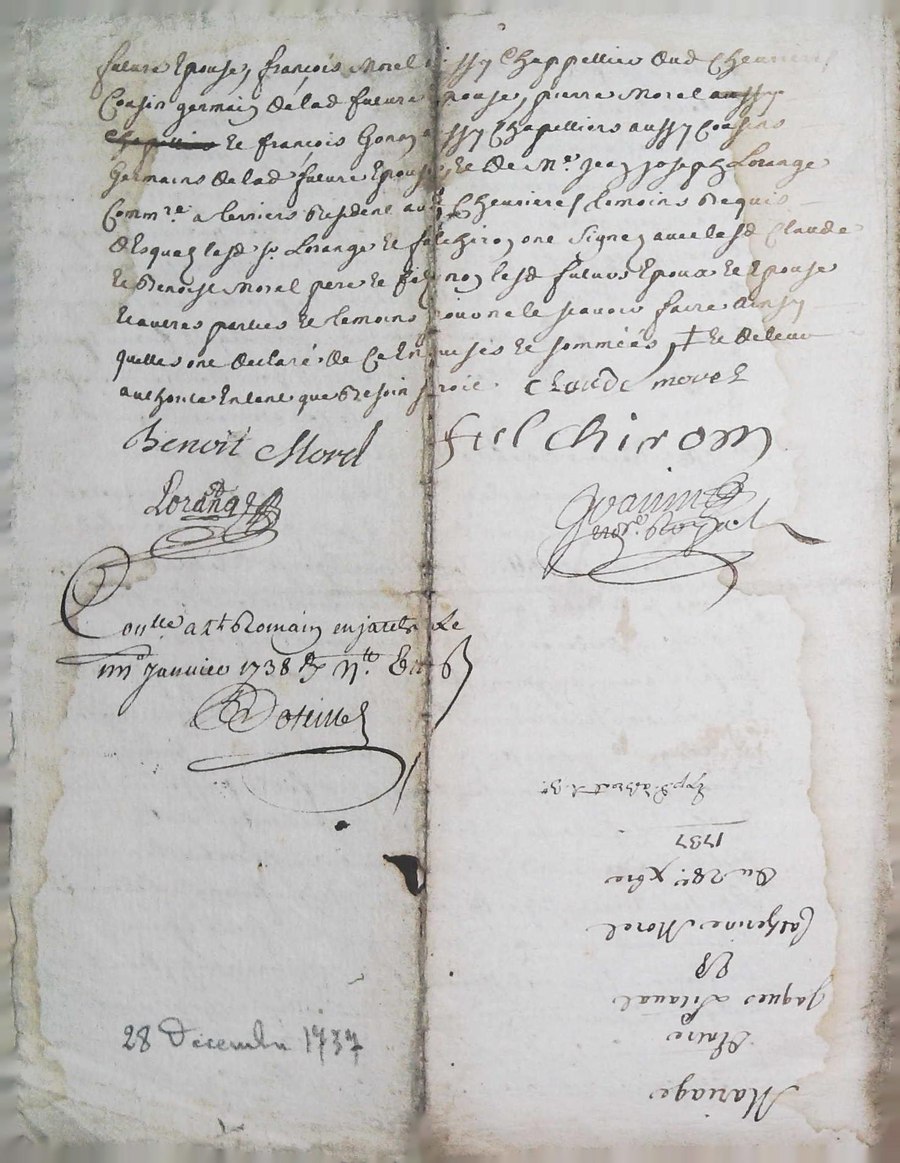 future Epouse, françois Morel aussy Chappellier dud Chevrieres
Cousin germain de lad future Epouse, pierre Morel aussy
chapellier Et françois Gonon aussy Chapelliers aussy Cousins
Germains de lad future Epouse, Et de Me. Jean Joseph Lorange
Commre. a terriers Resident aud Chevrieres temoins Requis
desquels led sr. Lorange Et felchiron ont Signez avec lesd Claude
Et Benoist Morel pere Et fils non lesd futurs Epoux Et Epouse
Et autres parties Et temoins pour ne le sçavoir faire ainsy
quelles ont declaré de Ce Enquises Et sommées Et de leur
authorite Entent que Besoin seroit. Claude morel
Benoit Morel felchirom
Lorange
not. Royal
Conlle a st Romain en jarets Le
Janvier 1738
28 Décembre 1737
Mariage
Entre
Jaques
Et
Catherine Morel
Du 28e. xbre
1737